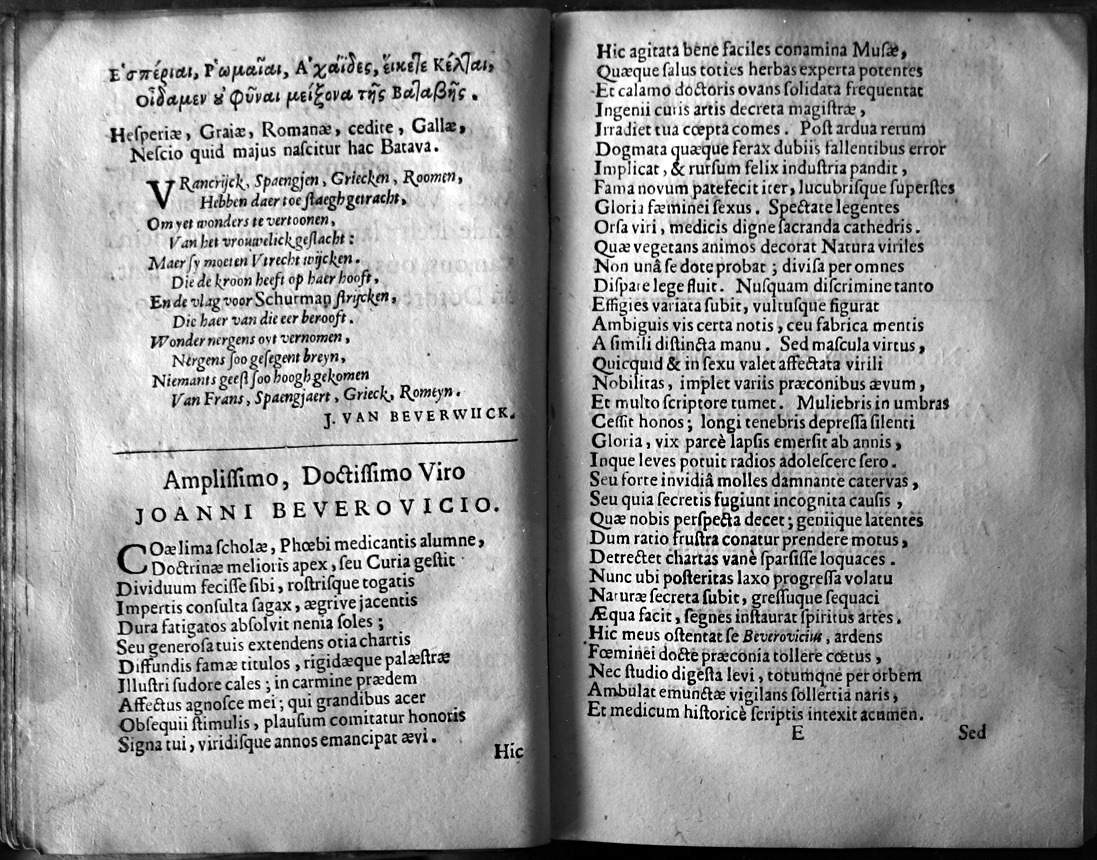 Ἑσπέριαι, Ῥωμαῖαι, Ἀχαΐδες, εἴκετε Κέλται,
οἶδαμεν ȣ̓ φῦναι μείζονα τῆς Βαταβῆς.
Heſperiæ, Graiæ, Romanæ, cedite, Gallæ,
Neſcio quid majus naſcitur hac Batava.
VRancrijck, Spaengjen, Griecken, Roomen,
Hebben daer toe ſtaegh getracht,
Om yet wonders te vertoonen,
Van het vrouwelick geſlacht:
Maer ſy moeten Vtrecht wijcken.
Die de kroon heeft op haer hooft,
En de vlag voor Schurman ſtrijcken,
Die haer van die eer berooft.
Wonder nergens oyt vernomen,
Nergens ſoo geſegent breyn,
Niemants geeſt ſoo hoogh gekomen
Van Frans, Spaengjaert, Grieck, Romeyn.
J. VAN BEVERWIICK.
Ampliſſimo, Doctiſſimo Viro
JOANNI BEVEROVICIO.
COæ lima ſcholæ, Phœbi medicantis alumne,
Doctrinæ melioris apex, ſeu Curia geſtit
Dividuum feciſſe ſibi, roſtriſque togatis
Impertis conſulta ſagax, ægrive jacentis
Dura fatigatos abſolvit nenia ſoles;
Seu generoſa tuis extendens otia chartis
Diffundis famæ titulos, rigidæque palæſtræ
Illuſtri ſudore cales; in carmine prædem
Affectus agnoſce mei; qui grandibus acer
Obſequii ſtimulis, plauſum comitatur honoris
Signa tui, viridiſque annos emancipat ævi.
Hic
Hic agitata bene faciles conamina Muſæ,
Quæque ſalus toties herbas experta potentes
Et calamo doctoris ovans ſolidata frequentat
Ingenii curis artis decreta magiſtræ,
Irradiet tua cœpta comes. Poſt ardua rerum
Dogmata quæque ferax dubiis fallentibus error
Implicat, & rurſum felix induſtria pandit,
Fama novum patefecit iter, lucubriſque ſuperſtes
Gloria fæminei ſexus. Spectate legentes
Orſa viri, medicis digne ſacranda cathedris.
Quæ vegetans animos decorat Natura viriles
Non unâ ſe dote probat; diviſa per omnes
Diſpare lege fluit. Nuſquam diſcrimine tanto
Effigies variata ſubit, vultuſque figurat
Ambiguis vis certa notis, ceu fabrica mentis
A ſimili diſtincta manu. Sed maſcula virtus,
Quicquid & in ſexu valet affectata virili
Nobilitas, implet variis præconibus ævum,
Et multo ſcriptore tumet. Muliebris in umbras
Ceſſit honos; longi tenebris depreſſa ſilenti
Gloria, vix parcè lapſis emerſit ab annis,
Inque leves potuit radios adoleſcere ſero.
Seu forte invidiâ molles damnante catervas,
Seu quia ſecretis fugiunt incognita cauſis,
Quæ nobis perſpecta decet; geniique latentes
Dum ratio fruſtra conatur prendere motus,
Detrectet chartas vanè ſparſiſſe loquaces.
Nunc ubi poſteritas laxo progreſſa volatu
Naturæ ſecreta ſubit, greſſuque ſequaci
Æqua facit, ſegnes inſtaurat ſpiritus artes.
Hic meus oſtentat ſe Beverovicius, ardens
Fœminei docte præconia tollere cœtus,
Nec ſtudio digeſta levi, totumque per orbem
Ambulat emunctæ vigilans ſollertia naris,
Et medicum hiſtoricè ſcriptis intexit acumen.
E
Sed